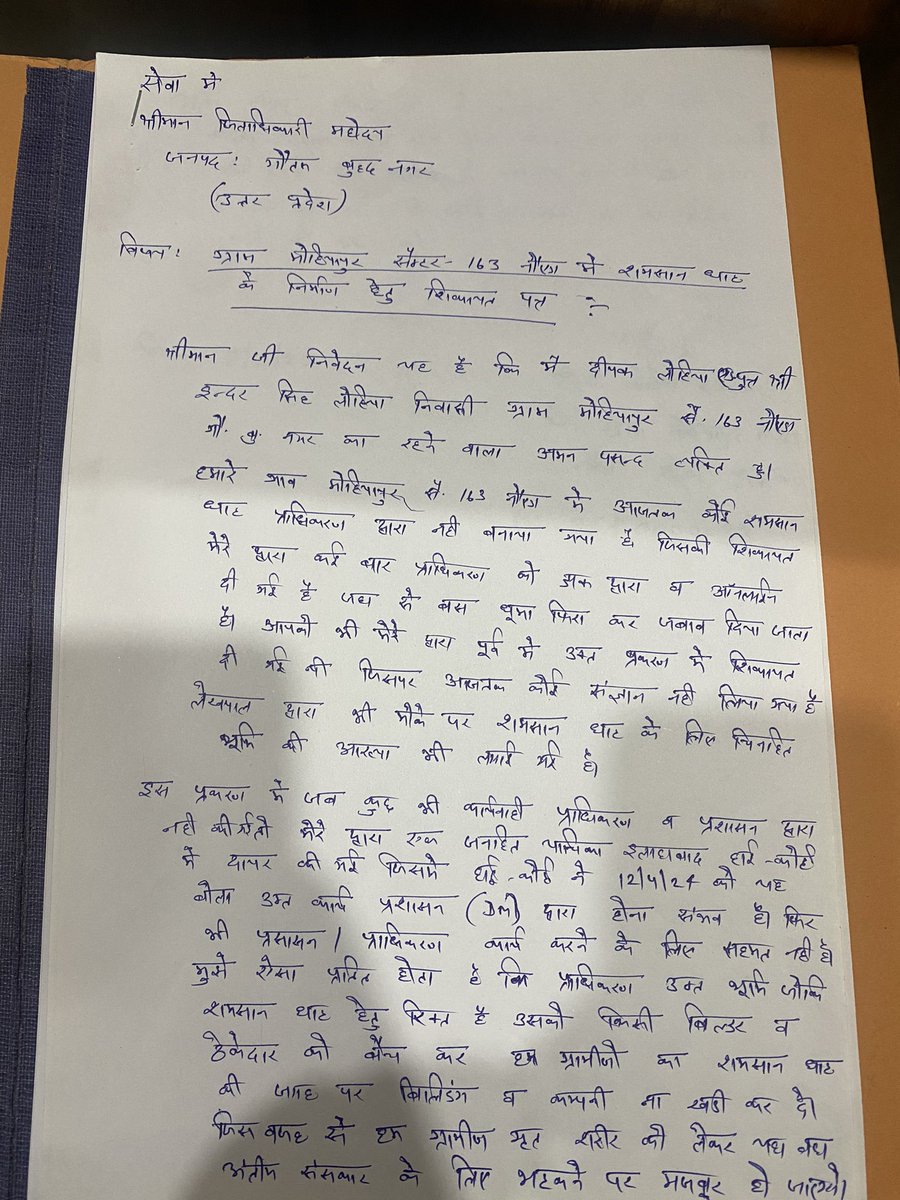 सेवा में
श्रीमान जिलाधिकारी महोदय
जनपद : गौतम बुद्ध नगर
(उत्तर प्रदेश)
विषय : ग्राम मोहियापुर सैक्टर - 163 नौएडा में शमसान घाट
के निर्माण हेतु शिकायत पत्र :-
श्रीमान जी निवेदन यह है कि मैं दीपक लोहिया सुपुत्र श्री
इन्दर सिंह लोहिया निवासी ग्राम मोहियापुर सै. 163 नौएडा
गौ. बु. नगर का रहने वाला अमन पसन्द व्यक्ति हूं।
हमारे गाव मोहियापुर सै. 163 नौएडा में आजतक कोई शमसान
घाट प्राधिकरण द्वारा नही बनाया गया है। जिसकी शिकायत
मेरे द्वारा कई बार प्राधिकरण को डाक द्वारा व ऑनलाईन
दी गई है जहा से बस घूमा फिरा कर जबाव दिया जाता
है। आपको भी मेरे द्वारा पूर्व में उक्त प्रकरण में शिकायत
दी गई थी जिसपर आजतक कोई संज्ञान नही लिया गया है
लेखपाल द्वारा भी मौके पर शमसान घाट के लिए चिनहित
भूमि की आख्या भी लगाई गई है।
इस प्रकरण में जब कुछ भी कार्यवाही प्राधिकरण व प्रशासन द्वारा
नही की गई तो मेरे द्वारा एक जनहित याचिका इलाहाबाद हाई-कोर्ट
में दायर की गई जिसमें हाई-कोर्ट ने 12/4/24 को यह
बोला उक्त कार्य प्रशासन (DM) द्वारा होना संभव है। फिर
भी प्रसासन / प्राधिकरण कार्य करने के लिए सहमत नही है।
मुझे ऐसा प्रतित होता है कि प्राधिकरण उक्त भूमि जोकि
शमसान घाट हेतु रिक्त है उसको किसी बिल्डर व
ठेकेदार को बैच कर हम ग्रामीणो का शमसान घाट
की जगह पर बिल्डिंग व कम्पनी ना खडी कर दे।
जिस वजह से हम ग्रामीण मृत शरीर को लेकर यहा वहा
अंतीम संसकार के लिए भटकने पर मजबूर हो जाऐगे।